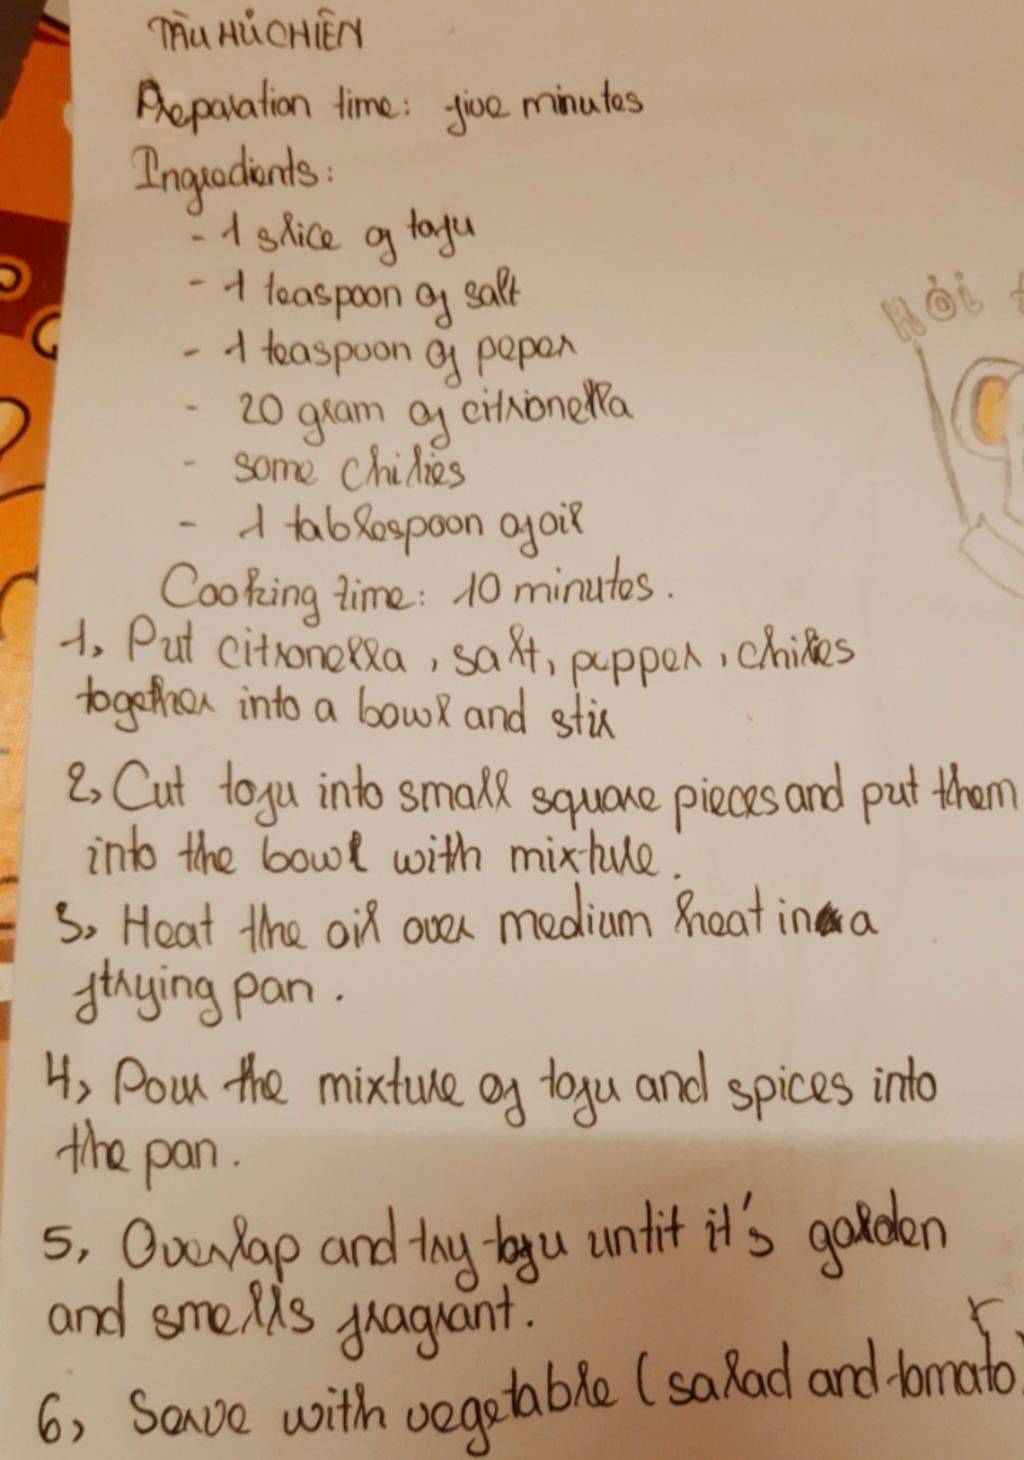 TÀU HỦ CHIÊN
Preparation time: five minutes
Ingredients:
- 1 slice of tofu
- 1 teaspoon of salt
- 1 teaspoon of peper
- 20 gram of citronella
- some chilies
- 1 tablespoon of oil
Cooking time: 10 minutes.
1, Put citronella, salt, pepper, chilies
together into a bowl and stir
2, Cut tofu into small square pieces and put them
into the bowl with mixture.
3, Heat the oil over medium heat in a
frying pan.
4, Pour the mixture of tofu and spices into
the pan.
5, Overlap and fry tofu until it's golden
and smells fragrant.
6, Serve with vegetable (salad and tomato)
HỎI